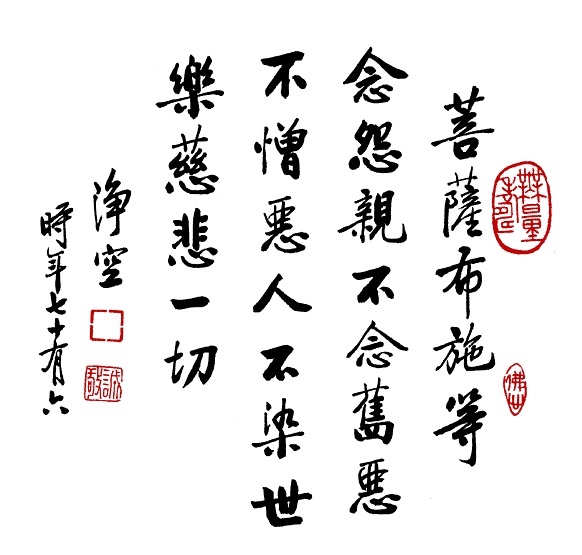 菩薩布施等
念怨親不念舊惡
不憎惡人不染世
樂慈悲一切
淨空
時年七十有六
無量壽
佛
誠敬